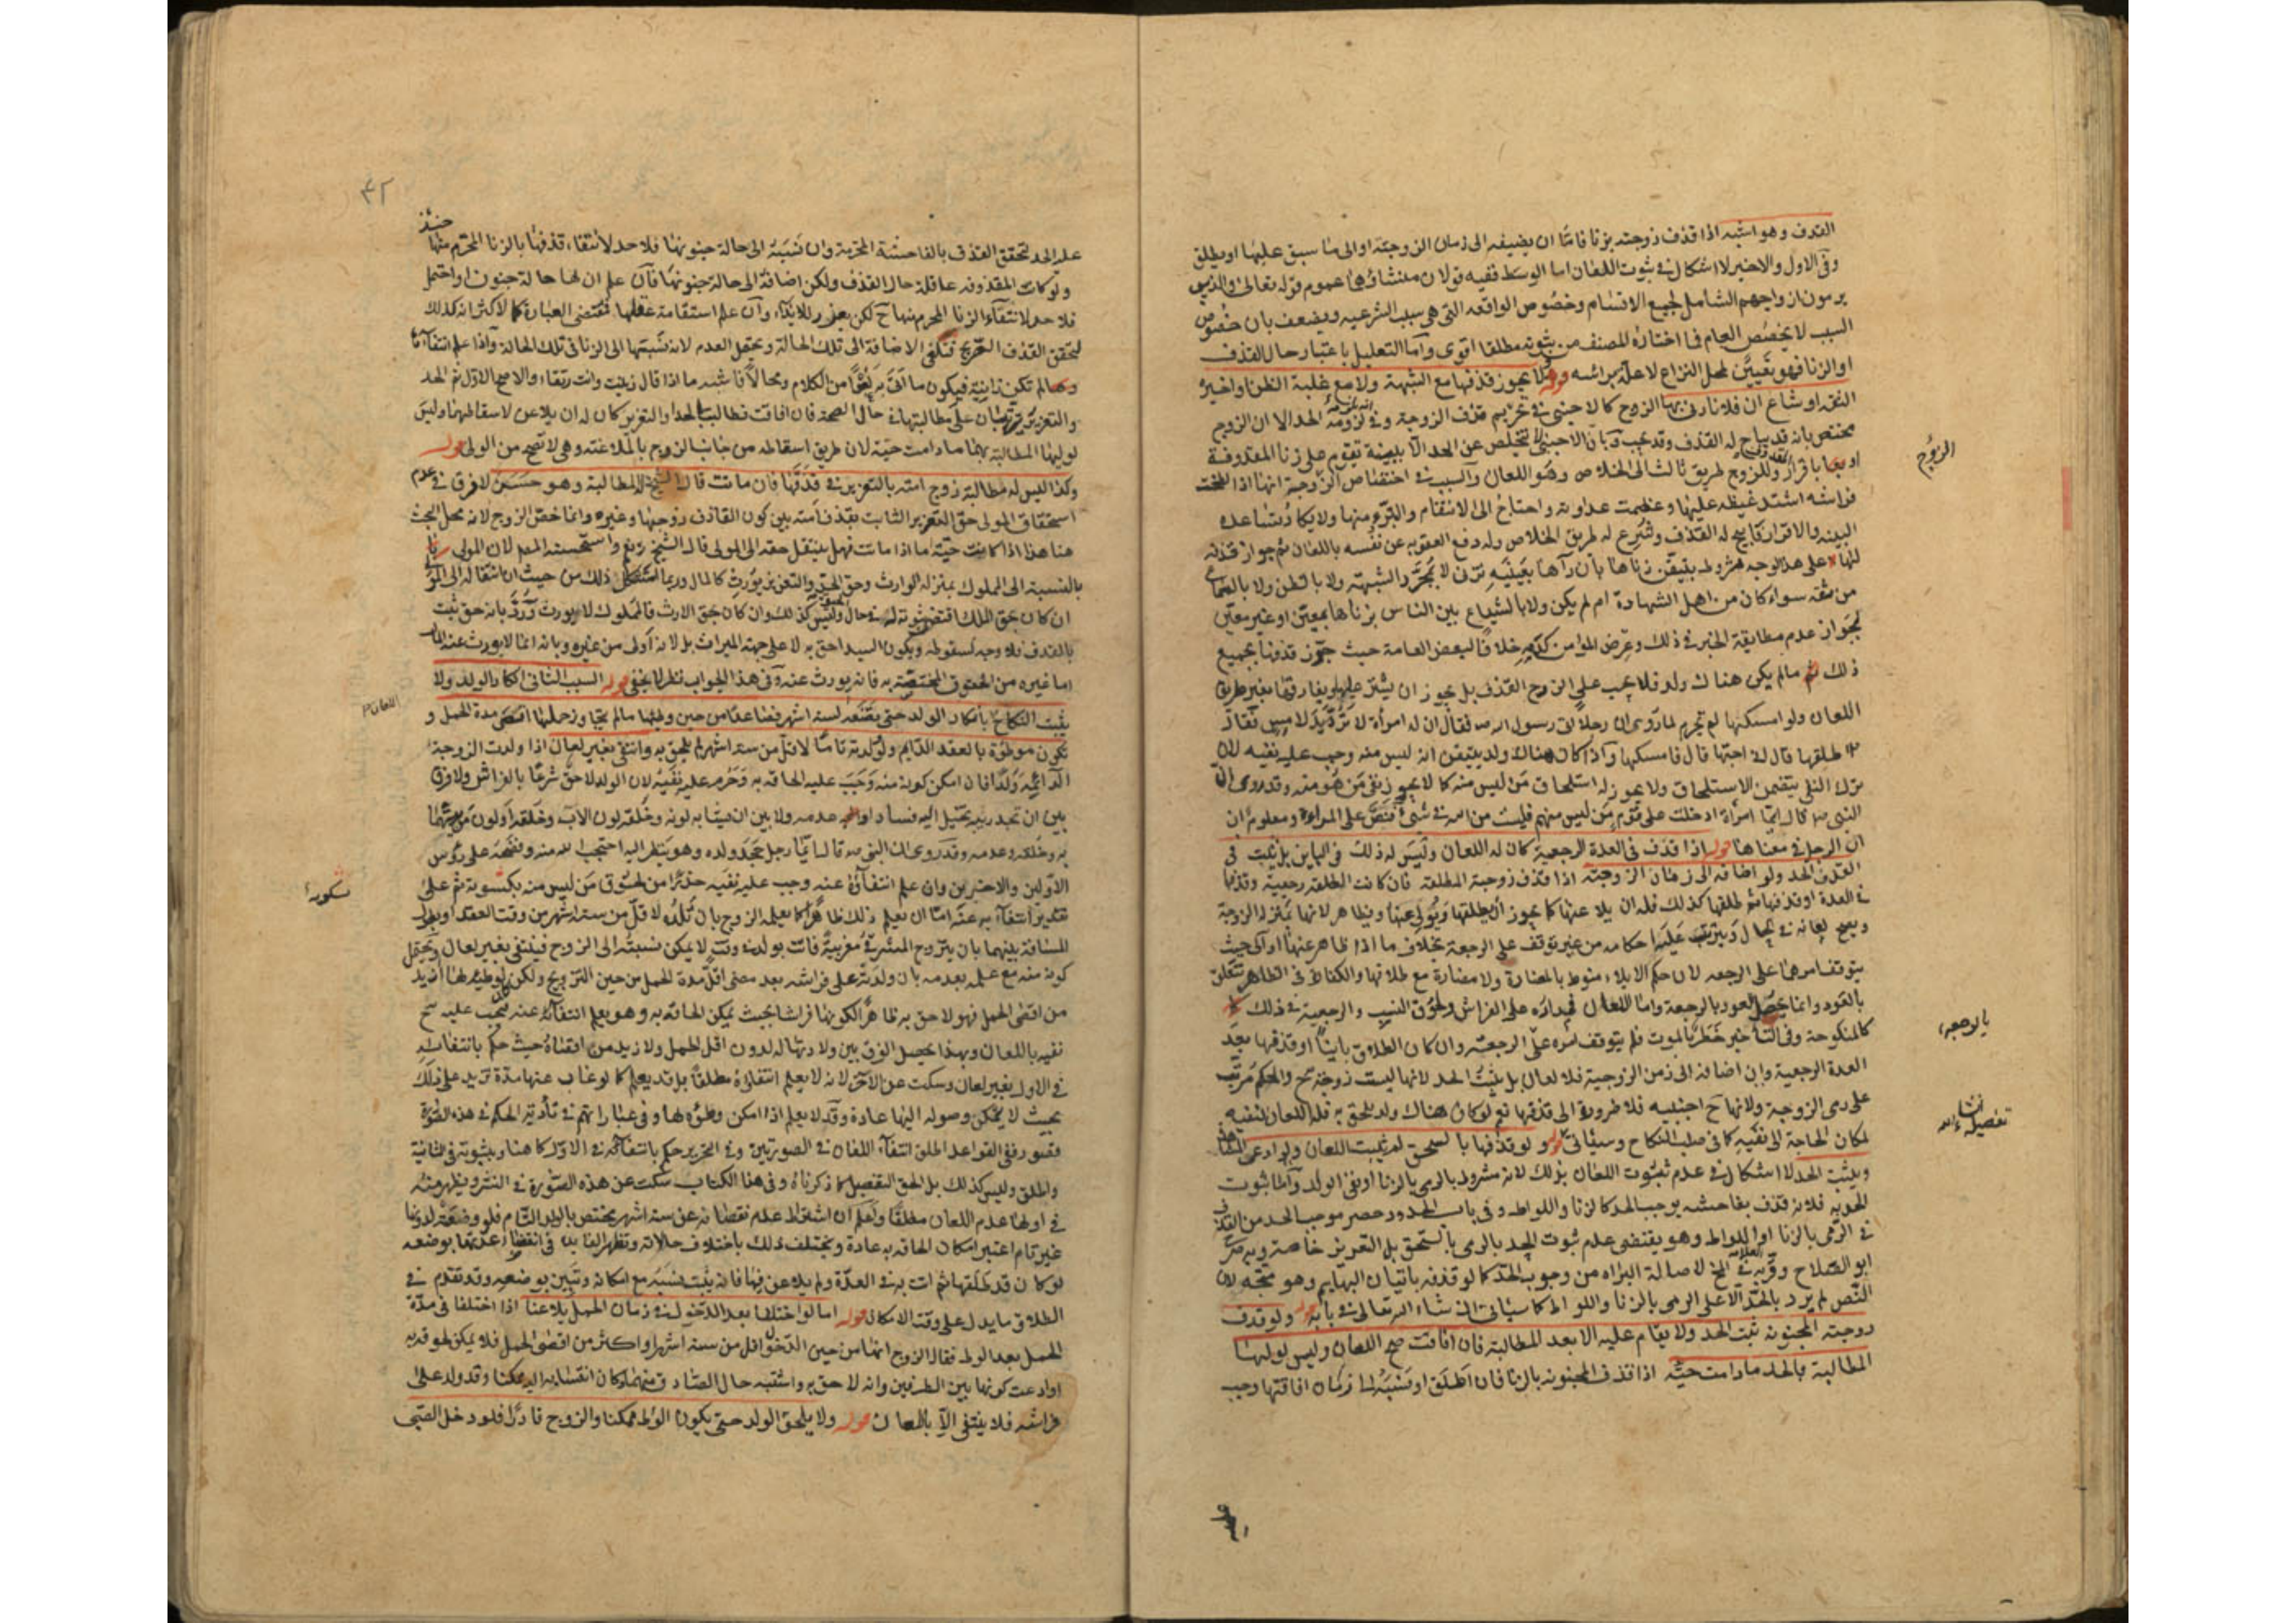 القذف وهو اشبه اذا قذف زوجته بزنا فامّا ان يضيفه الى زمان الزوجيّة او الى ما سبق عليها او يطلق
وفى الاول والاخير لا اشكال فى ثبوت اللعان اما الوسط ففيه قولان منشاؤهما عموم قوله تعالى والذين
يرمون ازواجهم الشامل لجميع الاقسام وخصوص الواقعه التى هى سبب الشرعيه ويضعف بان خصوص
السبب لا يخصّص العام فما اختاره المصنف من ثبوته مطلقا اقوى وامّا التعليل باعتبار حال القذف
او الزنا فهو تعيين لمحل النزاع لا علة براسه قوله ولا يجوز قذفها مع الشبهة ولا مع غلبة الظن وان اخبره
الثقه او شاع ان فلانا زنى بها الزوج كالاجنبى فى تحريم قذف الزوجة وفى لزومه الحد الا ان الزوج
مختص بانه قد يباح له القذف وقد يجب وبان الاجنبى لا يتخلص عن الحد الّا ببينة تقوم على زنا المقذوفة
او باقرار وللزوج طريق ثالث الى الخلاص وهو اللعان والسبب فى اختصاص الزوجية انها اذا لطخت
فراشه اشتد غيظه عليها وعظمت عداوته واحتاج الى الانتقام والتبرّى منها ولا يكاد تساعده
البينه والاقرار فابيح له القذف وشرع له طريق الخلاص وله دفع العقوبه عن نفسه باللعان ثم جواز قذفه
لها على هذا الوجه مشروط بتيقن زناها بان رآها بعينيه تزنى لا بمجرّد الشبهة ولا بالظن ولا بالسماع
من ثقه سواء كان من اهل الشهادة ام لم يكن ولا بالشياع بين الناس بزناها بمعيّن او غير معين
لجواز عدم مطابقة الخبر فى ذلك وعرض المؤامن كدمه خلافا لبعض العامة حيث جوّز قذفها بجميع
ذلك ثم مالم يكن هناك ولد فلا يجب على الزوج القذف بل يجوز ان يستر عليها ويفارقها بغير طريق
اللعان ولو امسكها لم تحرم لما روى ان رجلا اتى رسول الله فقال ان له امرأة لا تردّ يد لامس فقال
طلقها قال انى احبّها قال فامسكها واذا كان هناك ولد يتيقن انه ليس منه وجب عليه نفيه لان
ترك النفى يتضمن الاستلحاق ولا يجوز له استلحاق من ليس منه كما لا يجوز نفى من هو منه وقد روى ان
النبى ص قال ايّما امرأة ادخلت على قوم من ليس منهم فليست من الله فى شىء نصّ على المراءة ومعلوم ان
ان الرجل فى معناها قوله اذا قذف فى العدة الرجعية كان له اللعان وليس له ذلك فى الباين بل يثبت فى
القذف الحد ولو اضافه الى زمان الزوجيّه اذا قذف زوجته المطلقة فان كانت الطلقة رجعية وقذفها
فى العدة او قذفها ثم طلقها كذلك فله ان يلاعنها كما يجوز ان يطلقها ويولى عنها ويظاهر لانها بمنزلة الزوجة
ويصح لعانه فى الحال ويترتب عليه احكامه من غير توقف على الرجعة بخلاف ما اذا ظاهر عنها او آلى حيث
يتوقف امرهما على الرجعه لان حكم الايلاء منوط بالمضارة ولا مضارة مع طلاقها والكفاره فى الظهار تتعلق
بالعود وانما يحصل العود بالرجعة واما اللعان فمداره على الفراش ولحوق النسب والرجعية فى ذلك
كالمنكوحة وفى التأخير خطر بالموت فلم يتوقف امره على الرجعة وان كان الطلاق باينا او قذفها بعد
العدة الرجعية وان اضافه الى زمن الزوجية فلا لعان بل يثبت الحد لانها ليست زوجة ح والحكم مرتّب
على رمى الزوجة ولانها ح اجنبيه فلا ضرورة الى قذفها نعم لو كان هناك ولد يلحق به فله اللعان لنفيه
لمكان الحاجة الى نفيه كما فى صلب النكاح وسيأتى قوله ولو قذفها بالسحق لم يثبت اللعان ولو ادعى المشاهدة
ويثبت الحد لا اشكال فى عدم ثبوت اللعان بذلك لانه مشروط بالرمى بالزنا او نفى الولد وامّا ثبوت
الحد به فلانه قذف بفاحشه يوجب الحد كالزنا واللواط وفى باب الحدود حصر موجب الحد من القذف
فى الرمى بالزنا او اللواط وهو يقتضى عدم ثبوت الحد بالرمى بالسحق بل التعزير خاصة وبه صرّح
ابو الصلاح وقرّبه العلامة فى المخ لاصالة البراءه من وجوب الحدّ كما لو قذفه باتيان البهايم وهو متّجه لان
النّص لم يرد بالحدّ الّا على الرمى بالزنا واللواط كما سيأتى ان شاء الله تعالى فى بابه قوله ولو قذف
زوجته المجنونه ثبت الحد ولا يقام عليه الا بعد المطالبة فان افاقت صح اللعان وليس لوليها
المطالبة بالحد مادامت حيّه اذا قذف المجنونه بالزنا فان اطلق او نسبه الى زمان افاقتها وجب
بالرجعة
تفصيله انشاء الله
عليه
٤٢
عليه الحد لتحقق القذف بالفاحشة المحرمة وان نسبه الى حالة جنونها فلا حد لانتفاء قذفها بالزنا المحرّم منها حينئذ
ولو كانت المقذوفه عاقلة حال القذف ولكن اضافه الى حالة جنونها فان علم ان لها حالة جنون او احتمل
فلا حد لانتفاء الزنا المحرم منها ح لكن يعزر للايذاء وان علم استقامة عقلها فمقتضى العبارة كالاكثر انه كذلك
لتحقق القذف الصّريح فتلغى الاضافة الى تلك الحالة ويحتمل العدم لانه نسبها الى الزنا فى تلك الحالة واذا علم انتفاءها
لم تكن زانية فيكون ما اتى به لغوا من الكلام ومحالا فاشبه ما اذا قال زنيت وانت رتقاء والاصح الاول ثم الحد
والتعزير يترتبان على مطالبتها فى حال الصحة فان افاقت وطالبت بالحد او التعزير كان له ان يلاعن لاسقاطهما وليس
لوليها المطالبة بهما مادامت حيّة لان طريق اسقاطه من جانب الزوج بالملاعنه وهى لا تصح من الولى قوله
وكذا ليس له مطالبة زوج امته بالتعزير فى قذفها فان ماتت قال الشيخ له المطالبة وهو حسن لا فرق فى عدم
استحقاق المولى حق التعزير الثابت بقذف امته بين كون القاذف زوجها وغيره وانما خصّ الزوج لانه محل البحث
هنا هذا اذا كانت حيّة اما اذا ماتت فهل ينتقل حقه الى المولى قال الشيخ نعم واستحسنه المص لان المولى
بالنسبة الى المملوك بمنزلة الوارث وحق الحد والتعزير يورث كالمال وربما استشكل ذلك من حيث ان انتقاله الى المولى
ان كان بحق الملك اقتضى ثبوته له فى حال وليس كذلك وان كان بحق الارث فالمملوك لا يورث وردّ بانه حق ثبت
بالقذف فلا وجه لسقوطه ويكون السيد احق به لا على جهة الميراث بل لانه اولى من غيره وبانه انما لا يورث عنه المال
اما غيره من الحقوق المختصّة به فانه يورث عنه وفى هذا الجواب نظر لا يخفى قوله السبب الثانى انكار الولد ولا
يثبت اللعان بانكار الولد حتى يضعه لستة اشهر فصاعدا من حين وطئها مالم يتجاوز حملها اقصى مدة الحمل و
تكون موطوة بالعقد الدايم ولو ولدته تامّا لاقلّ من ستة اشهر لم يلحق به وانتفى بغير لعان اذا ولدت الزوجة
الدائمه ولدا فان امكن كونه منه وجب عليه الحاقه به وحرم عليه نفيه لان الولد لاحق شرعا بالفراش ولا فرق
بين ان تجدر يبه تخيل اليه فساد او عدمه ولا بين ان يشابه لونه وخلقه لون الاب وخلقه او لون من يتهمها
به وخلقه وعدمه وقد روى ان النبى ص قال ايّما رجل جحد ولده وهو ينظر اليه احتجب الله منه وفضحه على رؤس
الاولين والاخرين وان علم انتفاؤه عنه وجب عليه نفيه حذرا من لحوق من ليس منه بكسوته ثم على
تقدير انتفائه عنه امّا ان يعلم ذلك ظاهرا كما يعلمه الزوج بان تلده لاقلّ من ستة اشهر من وقت العقد او يطول
المسافة بينهما بان يتزوج المشرقى مغربيّة فاتت بولد فى وقت لا يمكن نسبته الى الزوج فينتفى بغير لعان ويحتمل
كونه منه مع علمه بعدمه بان ولدته على فراشه بعد مضى اقلّ مدة الحمل من حين التزويج ولكن لوطئه لها ازيد
من اقصى الحمل فهو لاحق به ظاهرا لكونها فراشا بحيث يمكن الحاقه به وهو يعلم انتفائه عنه فيجب عليه ح
نفيه باللعان وبهذا يحصل الفرق بين ولادتها له لدون اقل الحمل ولازيد من اقصاه حيث حكم بانتفائه
فى الاول بغير لعان وسكت عن الآخر لانه لا يعلم انتفاؤه مطلقا بل قد يعلم كما لو غاب عنها مدة تزيد على ذلك
بحيث لا يمكن وصوله اليها عادة وقد لا يعلم اذا امكن وطؤه لها وفى عباراتهم فى تأدية الحكم فى هذه الصّورة
قصور ففى القواعد اطلق انتفاء اللعان فى الصورتين وفى التحرير حكم بانتفائه فى الاول كما هنا وبثبوته فى الثانية
واطلق وليس كذلك بل الحق التفصيل كما ذكرناه وفى هذا الكتاب سكت عن هذه الصّورة فى النشر ويظهر منه
فى اولها عدم اللعان مطلقا واعلم ان اشتراط عدم نقصانه عن ستة اشهر يختص بالولد التام فلو وضعته لدونها
غير تام اعتبر امكان الحاقه به عادة ويختلف ذلك باختلاف حالاته وتظهر الفايدة فى انقضاء عدتها بوضعه
لو كان قد طلقها ثم اتت به فى العدّة ولم يلاعن فيها فانه يثبت نسبه مع امكانه وتبين بوضعه وقد تقدم فى
الطلاق ما يدل على وقت الامكان قوله اما لو اختلفا بعد الدخول فى زمان الحمل تلاعنا اذا اختلفا فى مدّة
الحمل بعد الوطء فقال الزوج انها من حين الدّخول اقل من ستة اشهر او اكثر من اقصى الحمل فلا يمكن لحوقه به
او ادعت كونها بين الطرفين وانه لاحق به واشتبه حال الصّادق منهما وكان انتسابه اليه ممكنا وقد ولد على
فراشه فلا ينتفى الّا باللعان قوله ولا يلحق الولد حتى يكون الوطء ممكنا والزوج قادرا فلو دخل الصّبى
اللعان